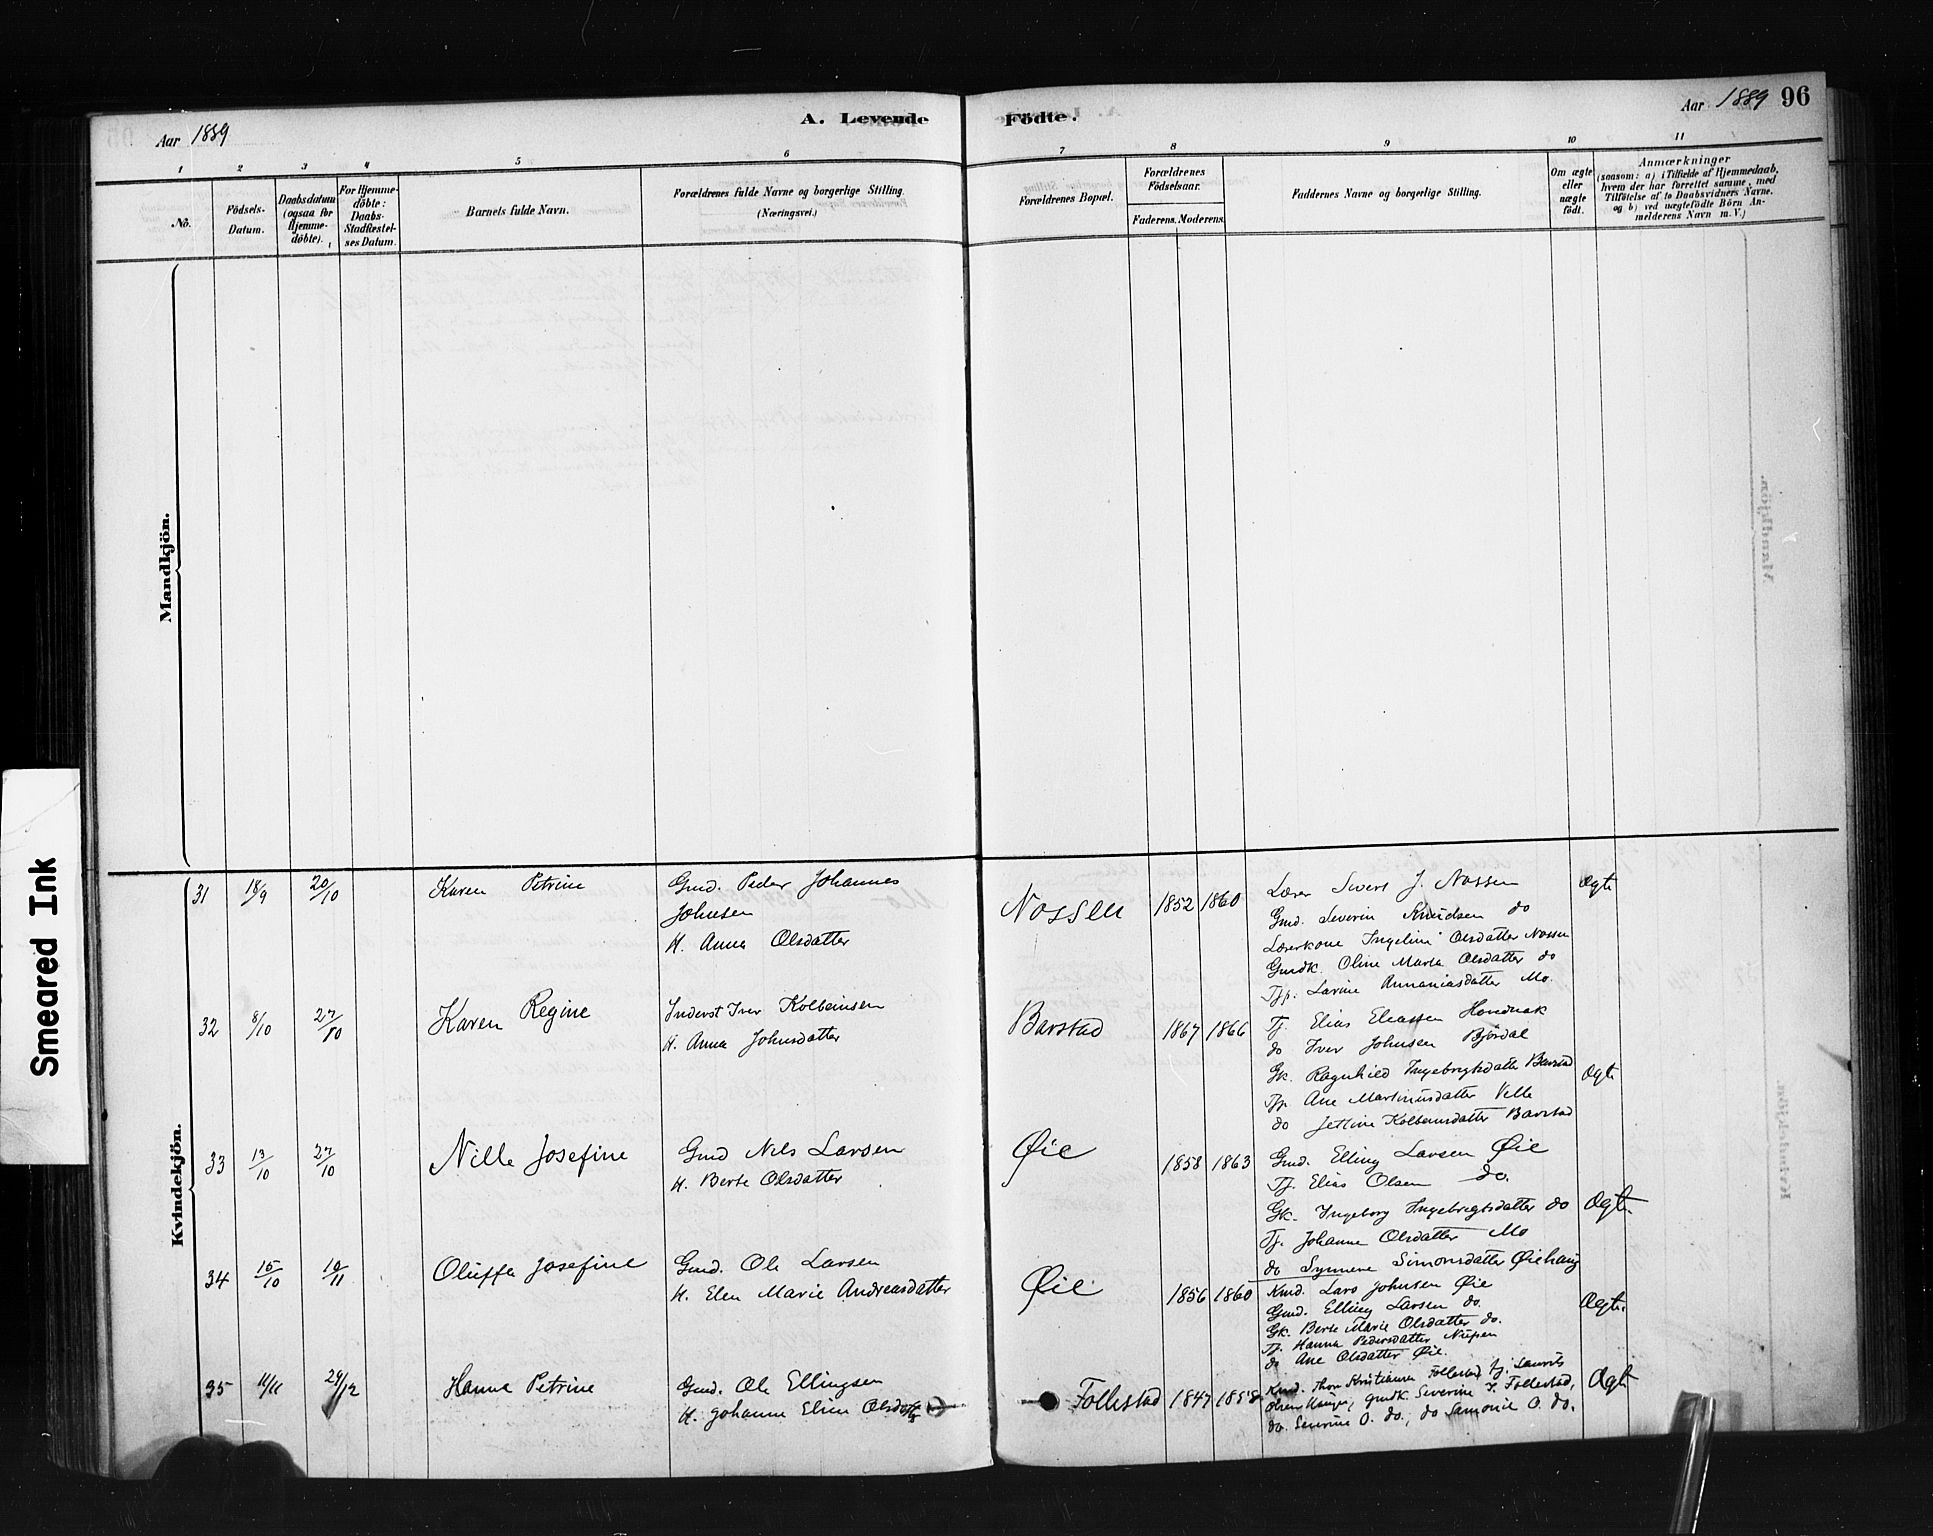 Aar 1889
A. Levende
Födte.
Aar 1889 96
1 2 3 4 5 6 7 8 9 10 11
No.
Födsels-
Datum.
Daabsdatum
(ogsaa for
Hjemme-
döbte).
For Hjemme-
döbte:
Daabs-
Stadfæstel-
ses Datum.
Barnets fulde Navn.
Forældrenes fulde Navne og borgerlige Stilling.
(Næringsvei.)
Forældrenes Bopæl.
Forældrenes
Födselsaar.
Faderens. Moderens.
Faddernes Navne og borgerlige Stilling.
Om ægte
eller
uægte
født.
Anmærkninger
(saasom: a) i Tilfælde af Hjemmedaab,
hvem der har forrettet samme, med
Tilföielse af to Daabsvidners Navne.
og b) ved uægtefödte Börn An-
melderens Navn m. V.)
Mandkjön.
Kvindekjön.
31 18/9 20/10 Karen Petrine
Gmd. Peder Johannes
Johnsen
H. Anna Olsdatter
Nossen 1852 1860
Lærer Sivert J. Nossen
Gmd. Severin Knudsen do
Lærerkone Ingeline Olsdatter Nossen
Gmdk. Oline Marta Olsdatter do
Tjp. Larine Annaniasdatter Mo.
Ægte
32 8/10 27/10 Karen Regine
Inderst Iver Kolbeinsen
H. Anna Johnsdatter
Barstad 1867 1866
Tj. Elias Eliassen
do Iver Johnsen Björdal
Gk. Ragnhild Ingebrigtsdatter Barstad
Tjp. Ane Martinusdatter Velle
do Jetline Kolbeinsdatter Barstad
Ægte
33 13/10 27/10 Nille Josefine
Gmd Nils Larsen
H. Berte Olsdatter
Øie 1858 1863
Gmd. Elling Larsen Øie
Tj. Elias Olsen do.
Gk. Ingeborg Ingebrigtsdatter do
Tj. Johanne Olsdatter Mo
do Synneve Simonsdatter Øiehaug
Ægte
34 15/10 10/11 Oluffa Josefine
Gmd. Ole Larsen
H. Elen Marie Andreasdatter
Øie 1856 1860
Kmd. Lars Johnsen Øie
Gmd. Elling Larsen do.
Gk. Berte Marie Olsdatter do.
Tj. Hanna Pedersdatter
do Ane Olsdatter Øie.
Ægte
35 11/11 29/12 Hanna Petrine
Gmd. Ole Ellingsen
H. Johanne Eline Olsdatter
Follestad 1847 1858
Kmd. Thore Kristiansen Follestad, tj. Laurits
Olsen, gmdk. Severine J. Follestad,
do. Severine O. do., do Samonie O. do.
Ægte
Smeared Ink